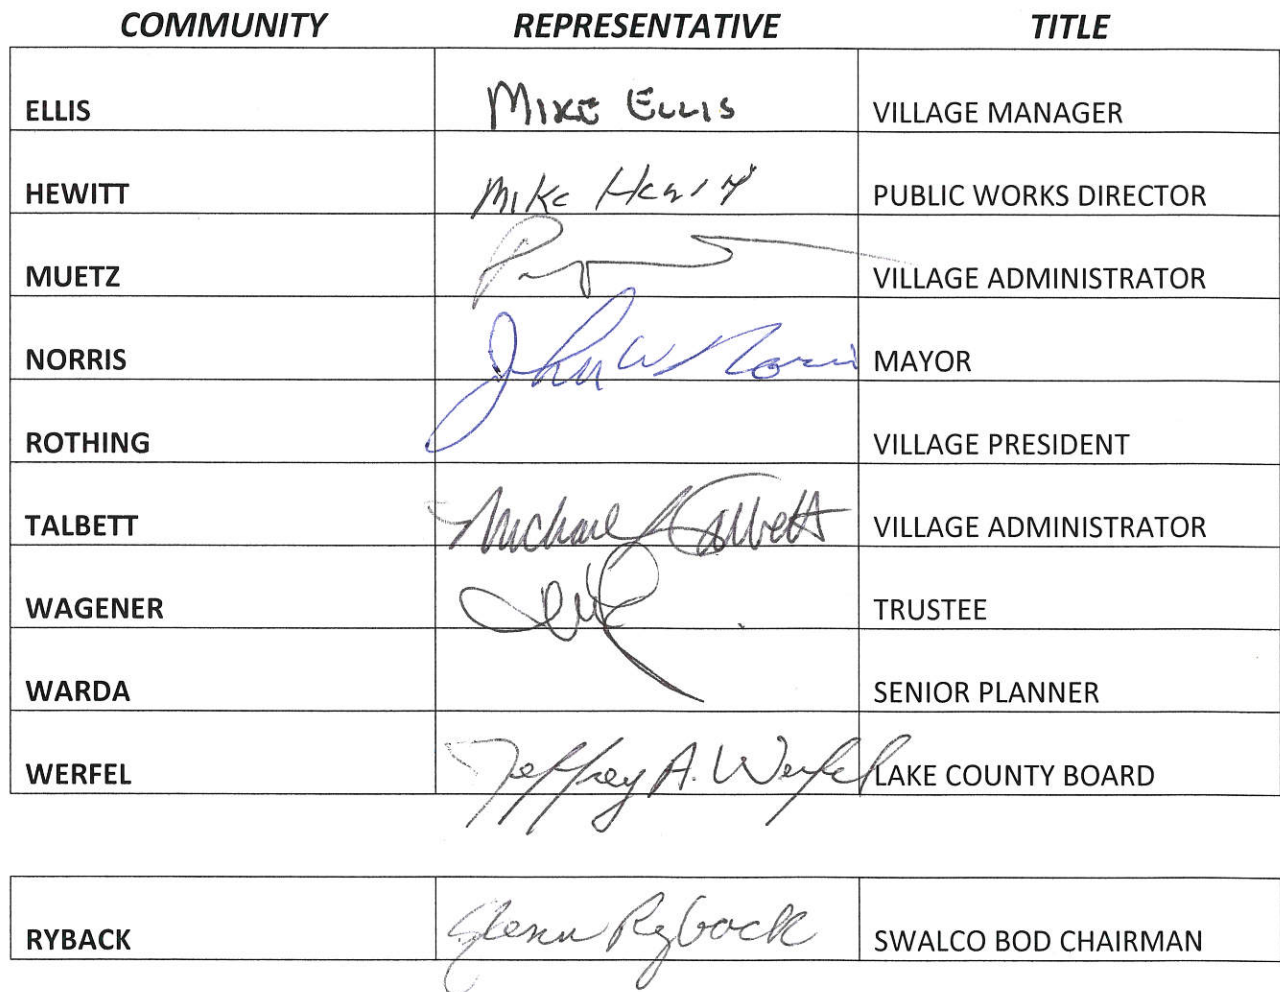 COMMUNITY REPRESENTATIVE TITLE
ELLIS MIKE ELLIS VILLAGE MANAGER
HEWITT Mike PUBLIC WORKS DIRECTOR
MUETZ VILLAGE ADMINISTRATOR
NORRIS John W Norris MAYOR
ROTHING VILLAGE PRESIDENT
TALBETT Michael Talbett VILLAGE ADMINISTRATOR
WAGENER TRUSTEE
WARDA SENIOR PLANNER
WERFEL Jeffrey A. Werfel LAKE COUNTY BOARD
RYBACK Glenn Ryback SWALCO BOD CHAIRMAN